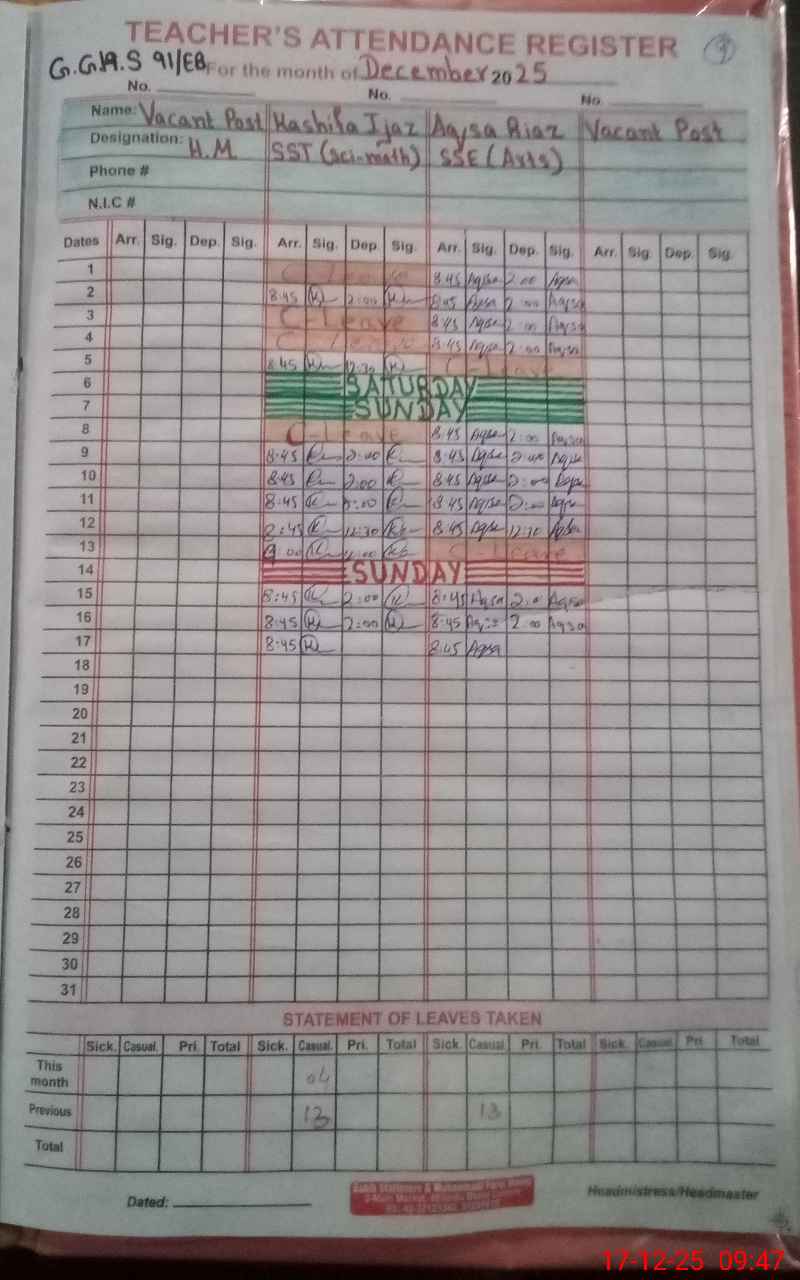 TEACHER'S ATTENDANCE REGISTER
G.G.H.S 91/EB For the month of December 2025
No. No. No.
Name: Vacant Post Kashifa Ijaz Aqsa Riaz Vacant Post
Designation: H.M SST (sci-math) SSE (Arts)
Phone #
N.I.C #
Dates Arr. Sig. Dep. Sig. Arr. Sig. Dep. Sig. Arr. Sig. Dep. Sig. Arr. Sig. Dep. Sig.
1 C-Leave 8:45 Aqsa 2:00 Aqsa
2 8:45 2:00 8:45 Aqsa 2:00 Aqsa
3 C-Leave 8:45 Aqsa 2:00 Aqsa
4 C-Leave 8:45 Aqsa 2:00 Aqsa
5 8:45 12:30 C-Leave
6 SATURDAY
7 SUNDAY
8 C-Leave 8:45 Aqsa 2:00 Aqsa
9 8:45 2:00 8:45 Aqsa 2:00 Aqsa
10 8:45 2:00 8:45 Aqsa 2:00 Aqsa
11 8:45 2:00 8:45 Aqsa 2:00 Aqsa
12 8:45 12:30 8:45 Aqsa 12:30 Aqsa
13 9:00 C-Leave
14 SUNDAY
15 8:45 2:00 8:45 Aqsa 2:00 Aqsa
16 8:45 2:00 8:45 Aqsa 2:00 Aqsa
17 8:45 8:45 Aqsa
18
19
20
21
22
23
24
25
26
27
28
29
30
31
STATEMENT OF LEAVES TAKEN
Sick. Casual. Pri. Total Sick. Casual. Pri. Total Sick. Casual. Pri. Total Sick. Casual. Pri. Total
This month 04
Previous 13 13
Total
Dated: Headmistress/Headmaster
17-12-25 09:47